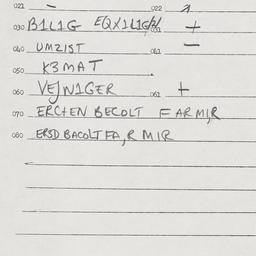 021 - 022
030 B1L1G EQX1L1G 031 +
040 UMZIST 041 -
050 K3MAT
060 VEJN1GER 061 +
070 ERCTEN BECOLT FARMIR
080 ERSD BACOLT FA, R MIR